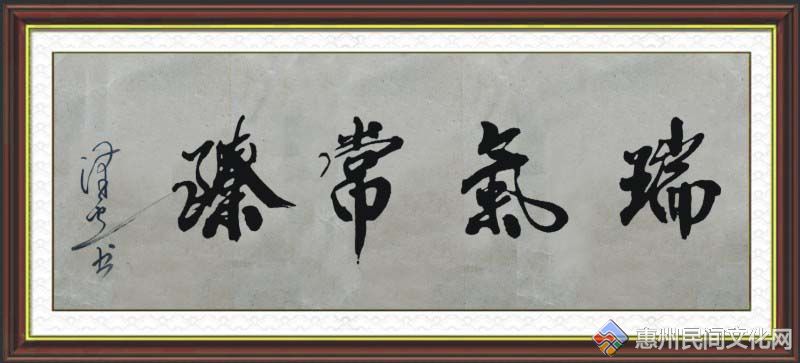 瑞氣常臻
书
惠州民间文化网